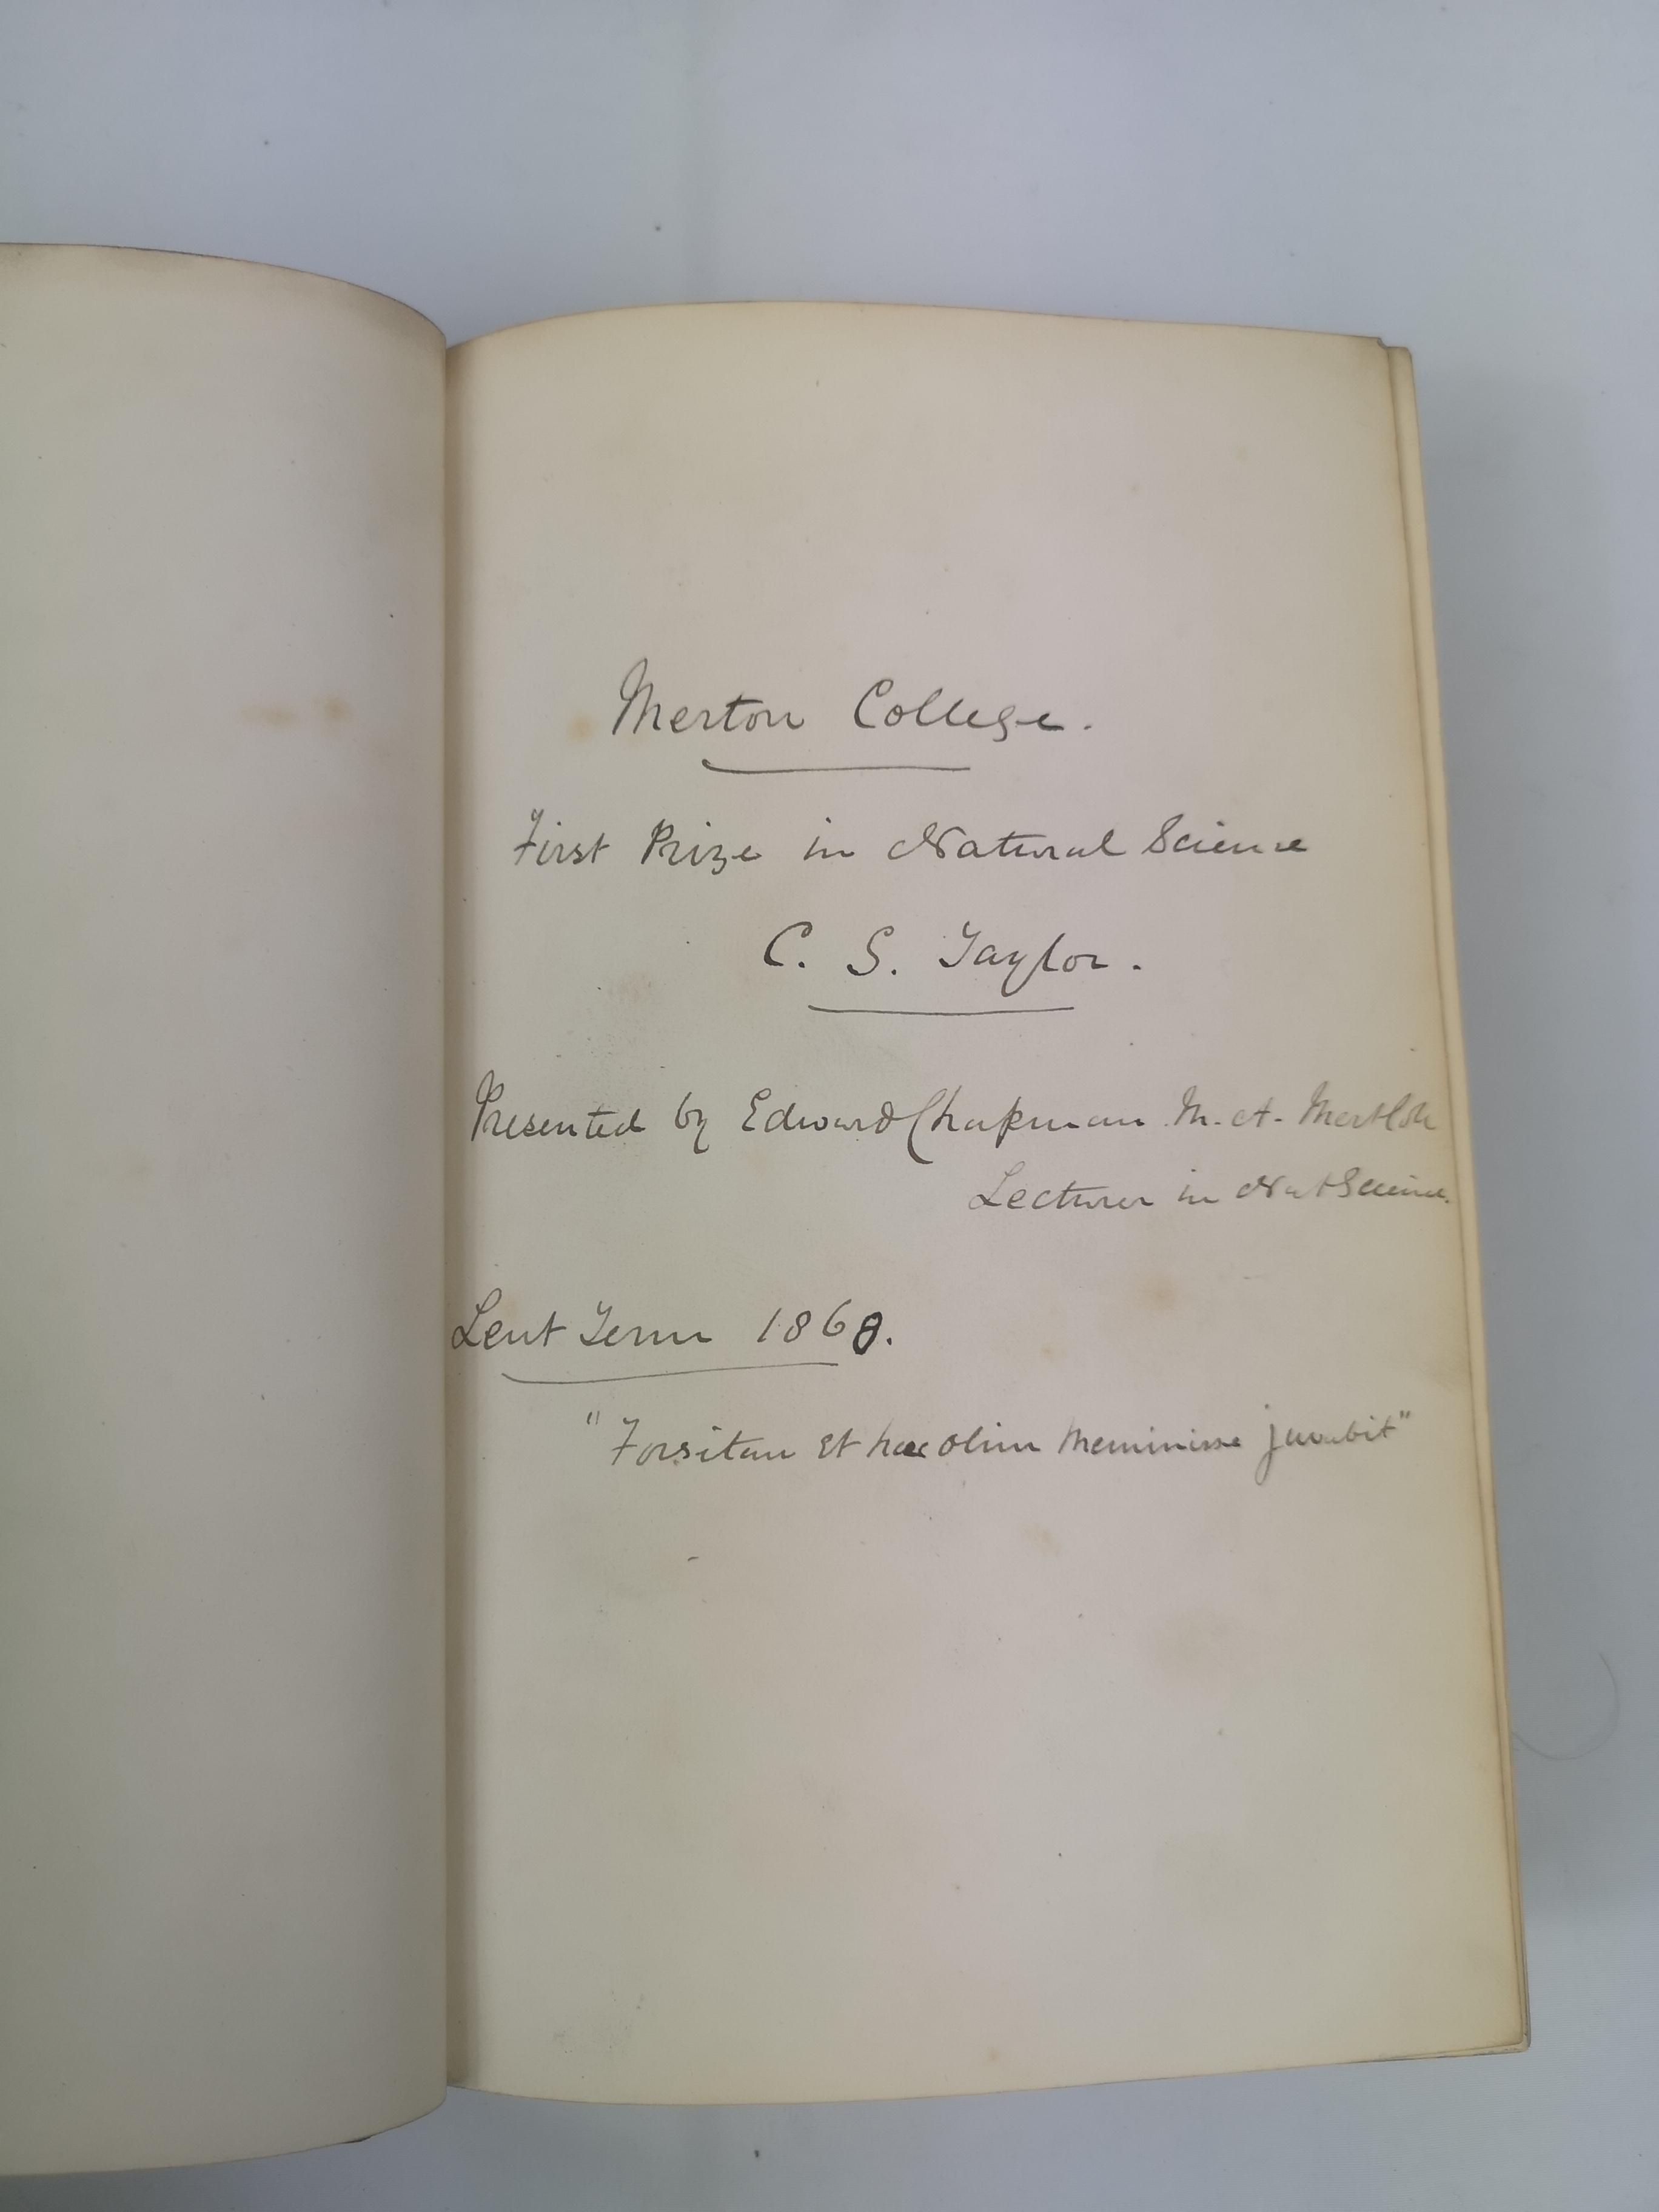 Merton College.
First Prize in Natural Science
C. S. Taylor.
Presented by Edward Chapman M. A. Mert Coll
Lecturer in Nat Science.
Lent Term 1868.
"Forsitan et haec olim meminisse juvabit"